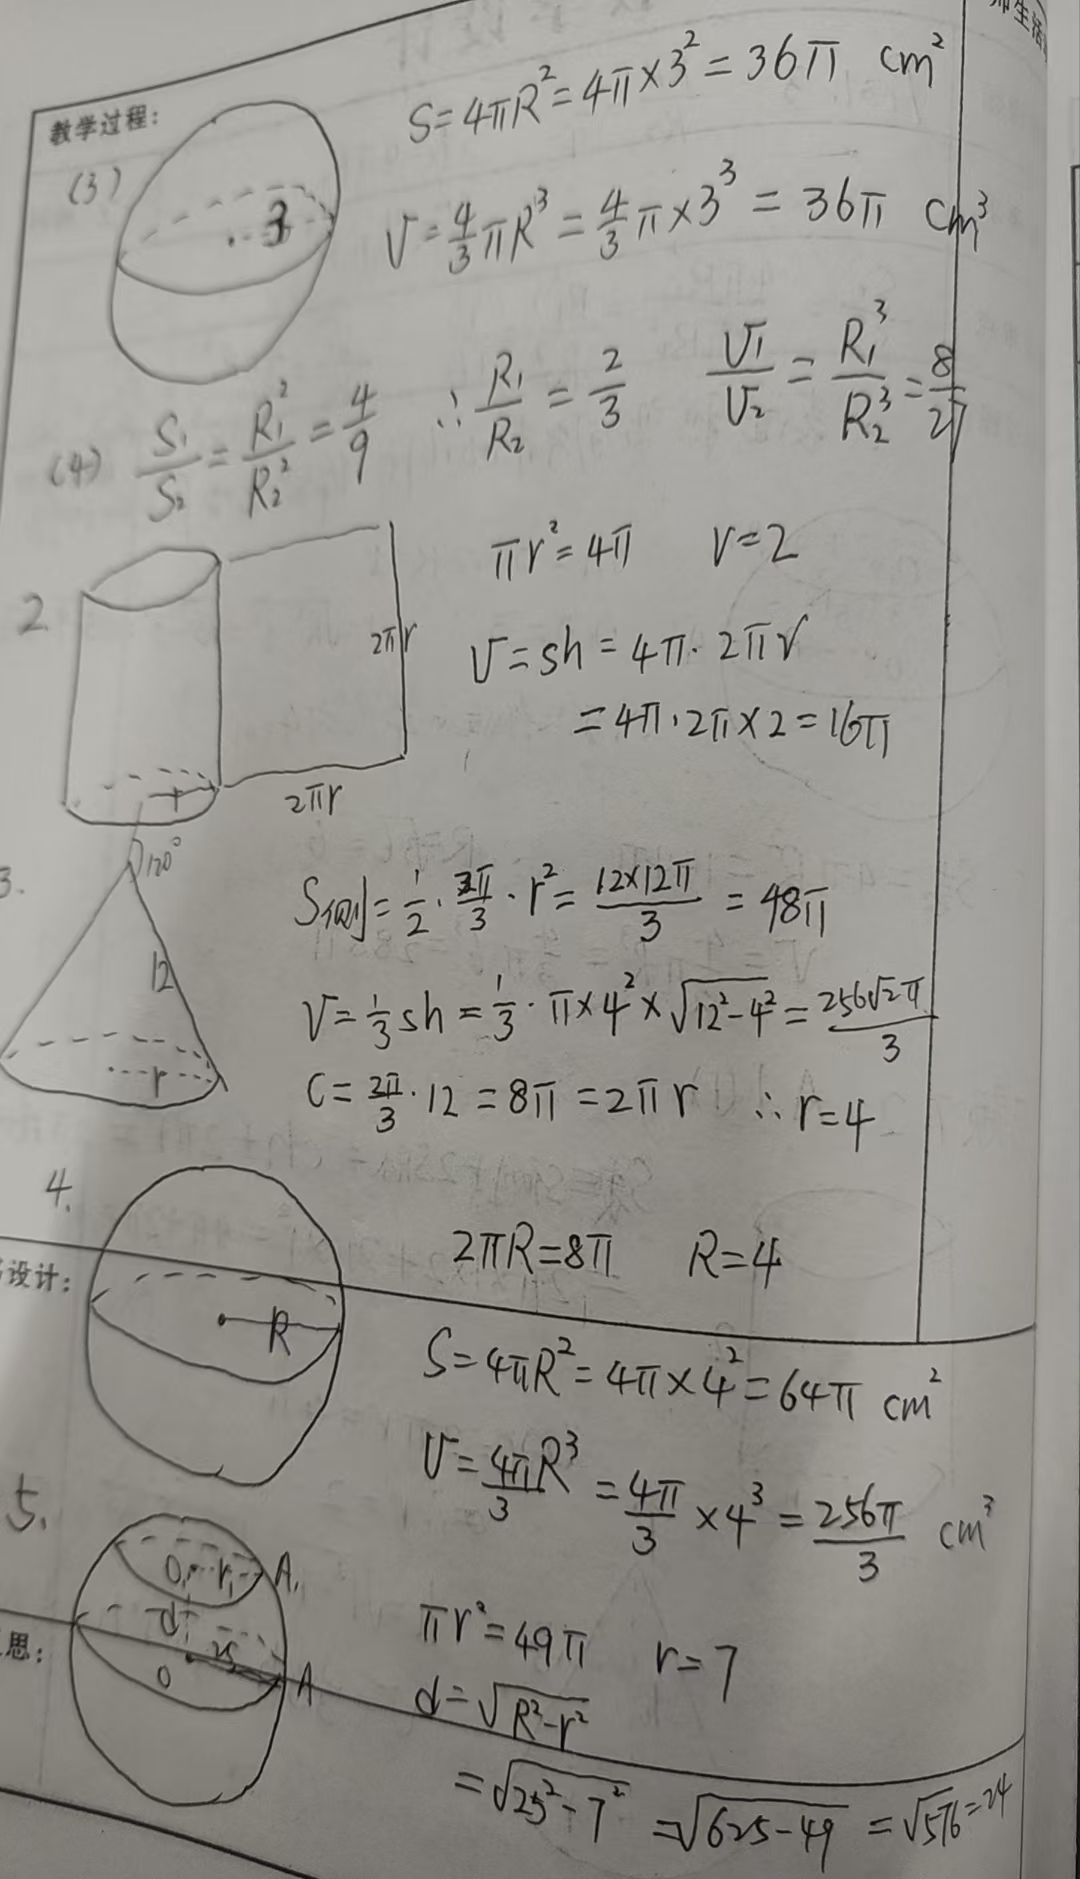 师生活
教学过程:
(3)
3
S=4πR²=4π×3²=36π cm²
V=4/3πR³=4/3π×3³=36π cm³
(4) S₁/S₂=R₁²/R₂²=4/9 ∴R₁/R₂=2/3 V₁/V₂=R₁³/R₂³=8/27
2
πr²=4π r=2
2πr
V=sh=4π·2πr
=4π·2π×2=16π
r
2πr
3.
120°
12
r
S侧=1/2·2π/3·r²=12×12π/3=48π
V=1/3sh=1/3·π×4²×√(12²-4²)=256√2π/3
C=2π/3·12=8π=2πr ∴r=4
4.
2πR=8π R=4
设计:
R
S=4πR²=4π×4²=64π cm²
V=4πR³/3=4π/3×4³=256π/3 cm³
5.
O₁ r₁ A₁
d
思:
O 25 A
πr²=49π r=7
d=√(R²-r²)
=√(25²-7²)=√(625-49)=√576=24